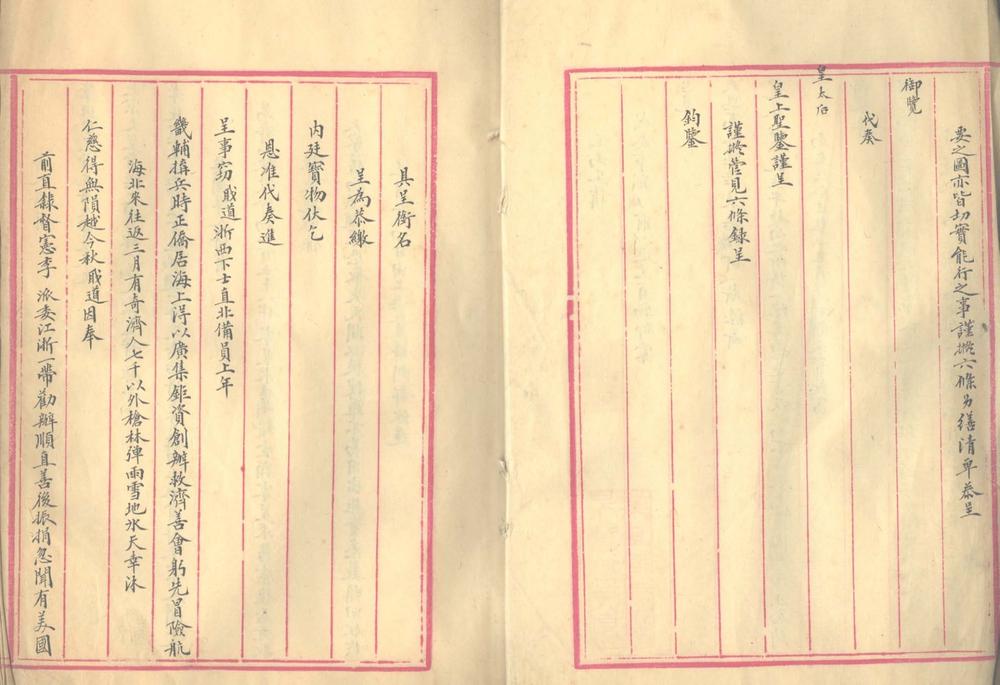 要之圖亦皆切實能行之事謹擬六條另繕清單恭呈
御覽
代奏
皇太后
皇上聖鑒謹呈
謹擬管見六條錄呈
鈞鑒
具呈銜名
呈為恭繳
内廷寶物伏乞
恩准代奏進
呈事窃戝道浙西下士直北備員上年
畿輔搆兵時正僑居海上得以廣集鉅資創辦救濟善會躬先冒險航
海北來往返三月有奇濟人七千以外槍林彈雨雪地氷天幸沐
仁慈得無隕越今秋戝道因奉
前直隸督憲李派委江浙一帶勸辦順直善後振捐忽聞有美國